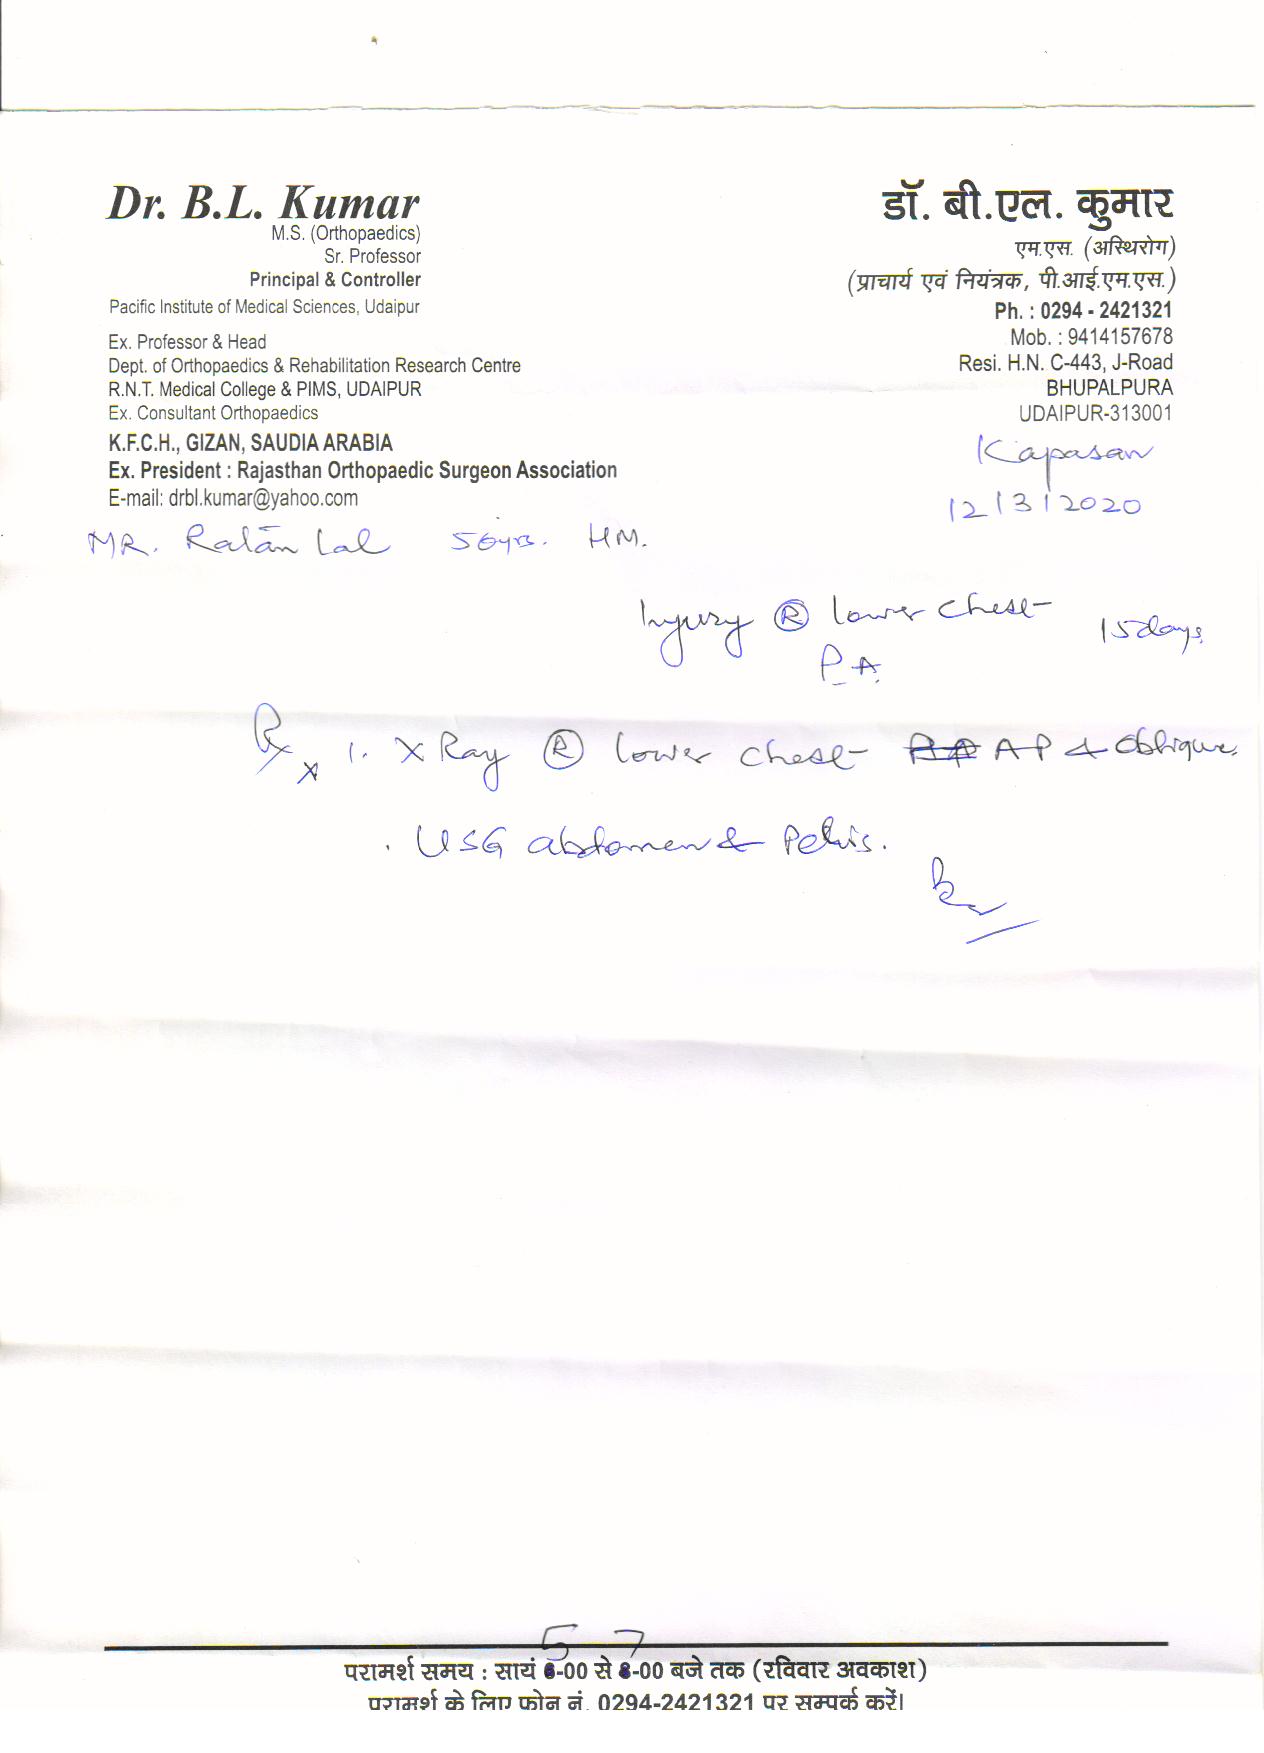 Dr. B.L. Kumar
M.S. (Orthopaedics)
Sr. Professor
Principal & Controller
Pacific Institute of Medical Sciences, Udaipur
Ex. Professor & Head
Dept. of Orthopaedics & Rehabilitation Research Centre
R.N.T. Medical College & PIMS, UDAIPUR
Ex. Consultant Orthopaedics
K.F.C.H., GIZAN, SAUDIA ARABIA
Ex. President : Rajasthan Orthopaedic Surgeon Association
E-mail: drbl.kumar@yahoo.com
डॉ. बी.एल. कुमार
एम.एस. (अस्थिरोग)
(प्राचार्य एवं नियंत्रक, पी.आई.एम.एस.)
Ph. : 0294 - 2421321
Mob. : 9414157678
Resi. H.N. C-443, J-Road
BHUPALPURA
UDAIPUR-313001
Kapasan
12/3/2020
MR. Ratan Lal 56yrs. HM.
Injury Ⓡ lower chest 15days
P.A.
Rx 1. X Ray Ⓡ lower chest AP & oblique.
. USG abdomen & Pelvis.
5 7
परामर्श समय : सायं 6-00 से 8-00 बजे तक (रविवार अवकाश)
परामर्श के लिए फोन नं. 0294-2421321 पर सम्पर्क करें।